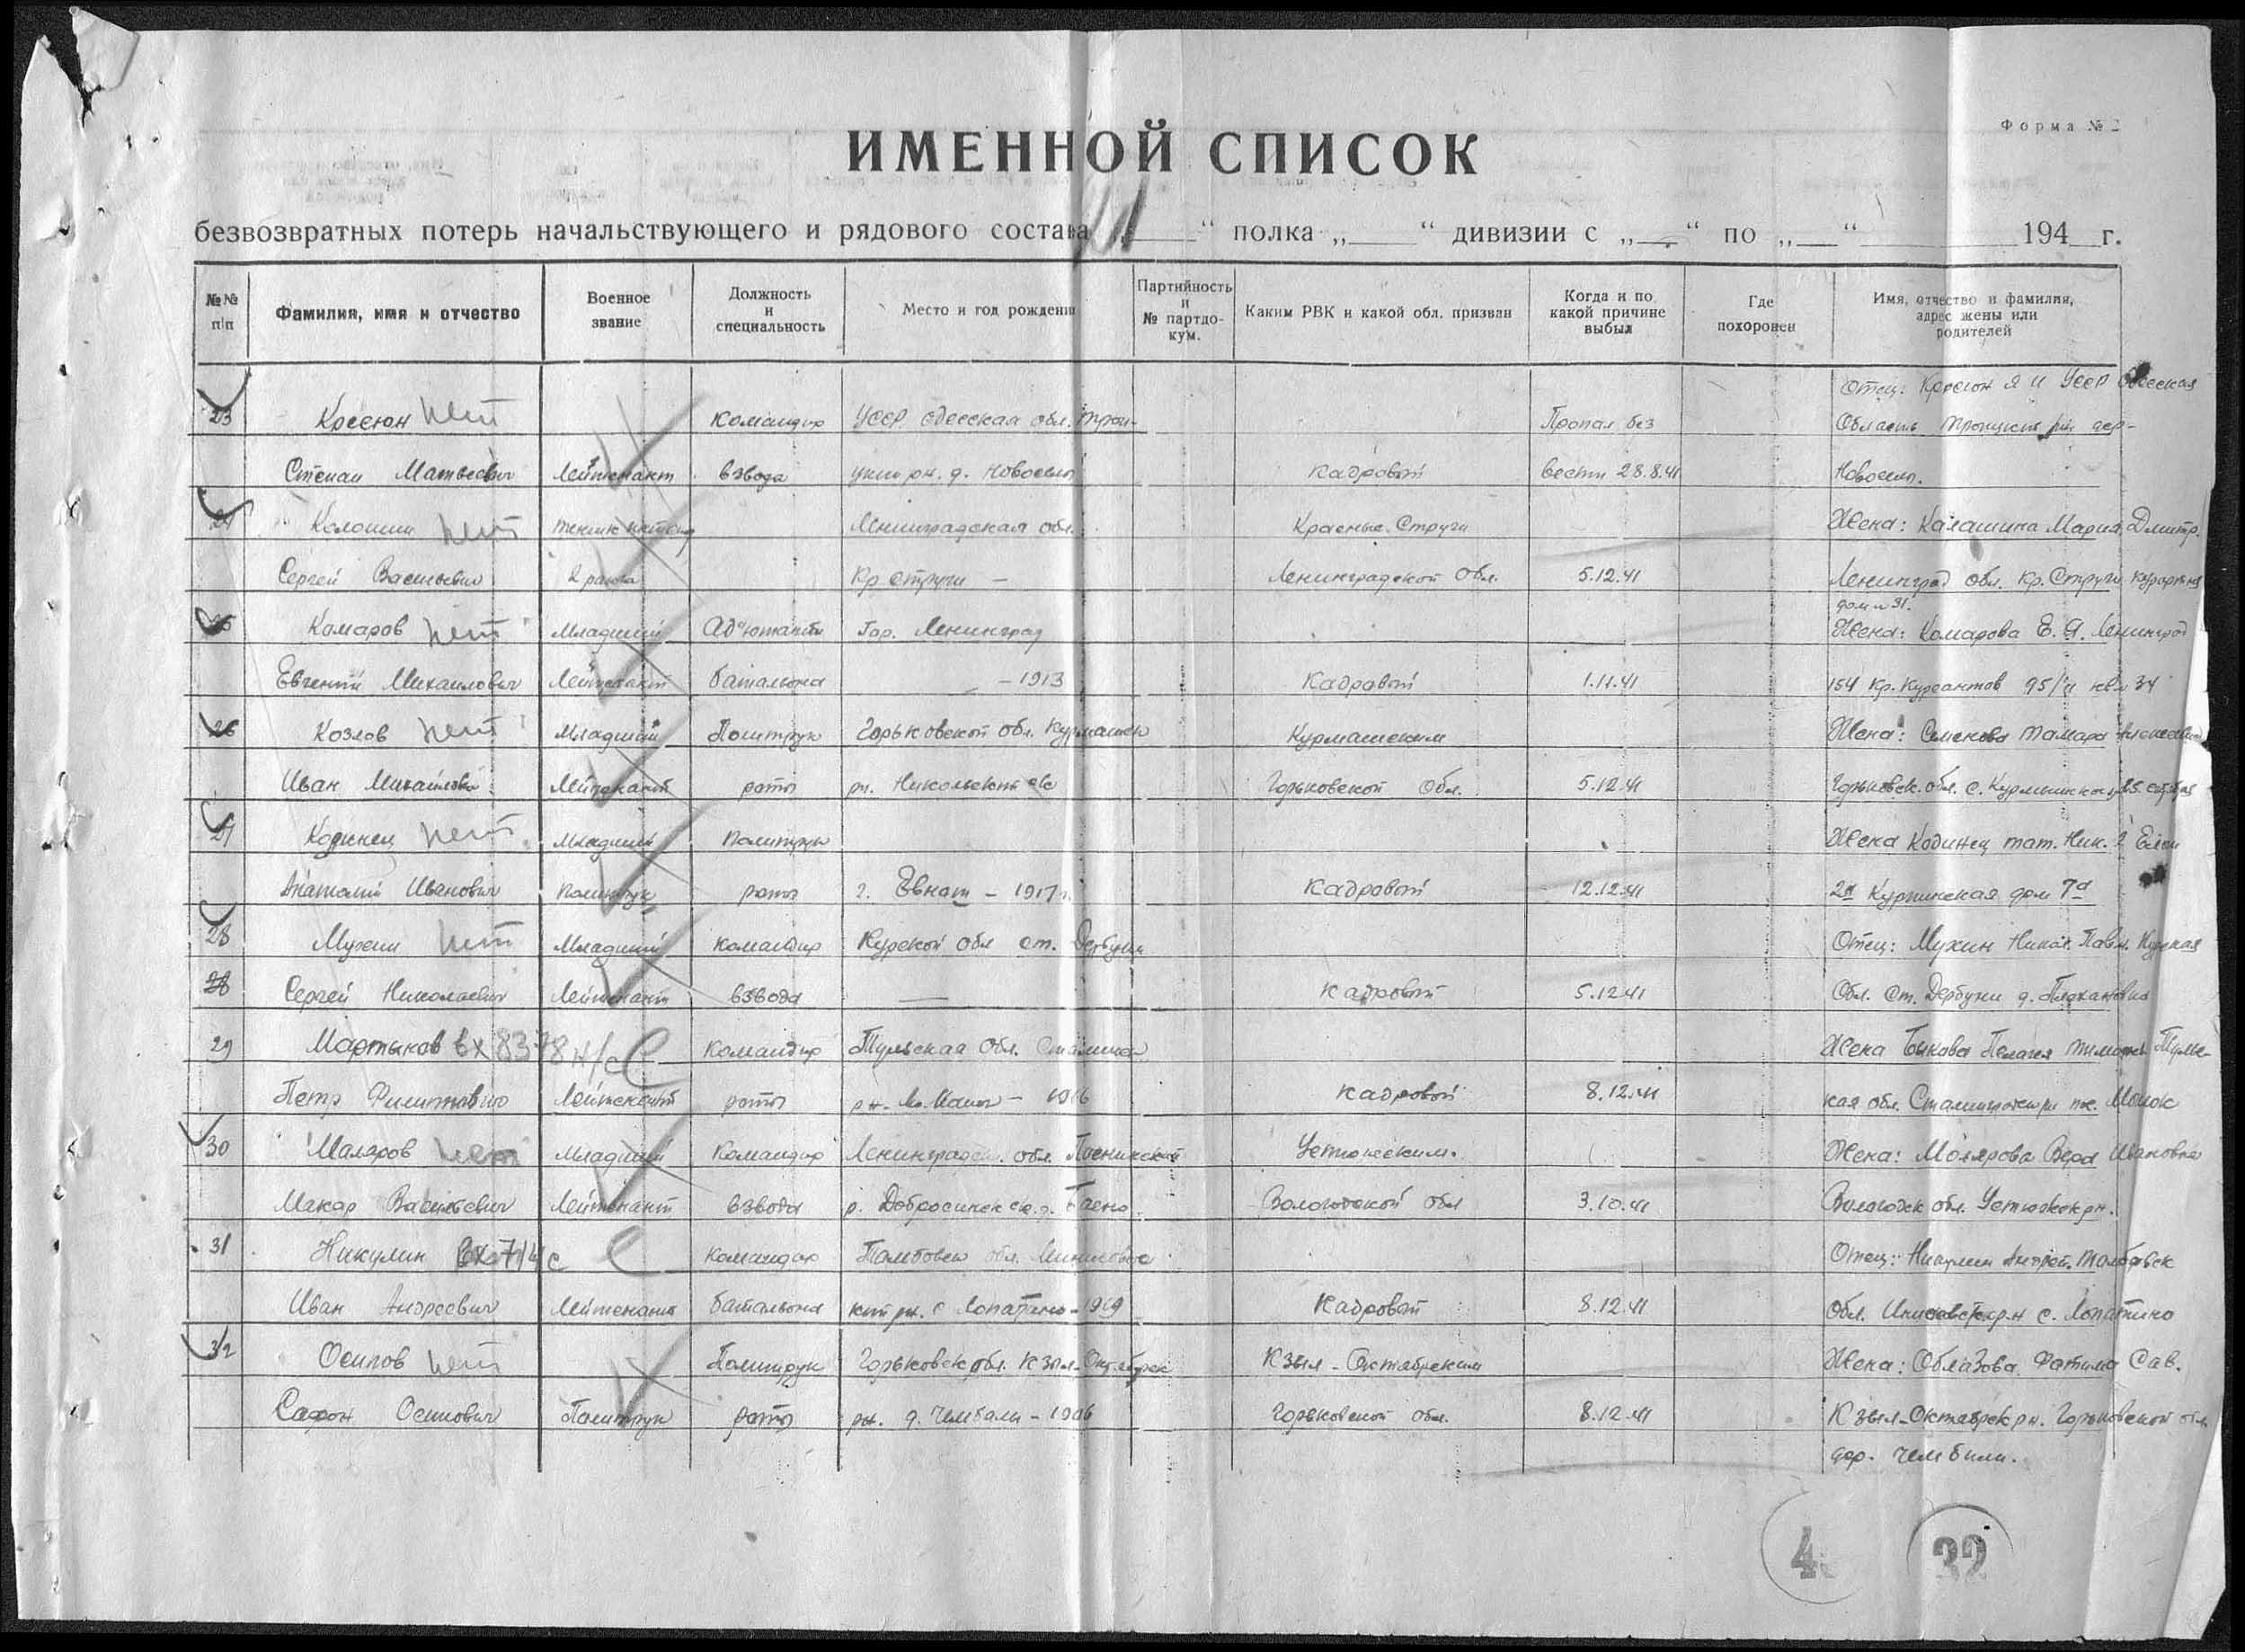 Форма № 2
ИМЕННОЙ СПИСОК
безвозвратных потерь начальствующего и рядового состава „ “ полка „ “ дивизии с „ “ по „ “ 194 г.
№№ п/п
Фамилия, имя и отчество
Военное звание
Должность и специальность
Место и год рождения
Партийность и № партдокум.
Каким РВК и какой обл. призван
Когда и по какой причине выбыл
Где похоронен
Имя, отчество и фамилия, адрес жены или родителей
Отец: Кресюн Я И УССР Одесская
23 Кресюн нет Командир УССР Одесская обл. Трои- Пропал без Область Троицкий рн дер-
Степан Матвеевич Лейтенант взвода цкий рн. д. Новосели Кадровый вести 28.8.41 Новосели.
24 Колошин нет техник Ленинградская обл. Красные Струги Жена: Калашина Мария Дмитр.
Сергей Васильевич 2 ранга Кр Струги — Ленинградской обл. 5.12.41 Ленинград обл. Кр. Струги
дом № 31.
25 Комаров нет Младший Ад"ютант Гор. Ленинград Жена: Комарова Е. Я. Ленинград
Евгений Михаилович Лейтенант батальона — 1913 Кадровый 1.11.41 154 Кр. Курсантов 95/11 кв 34
26 Козлов нет Младший Политрук Горьковской обл. Курмышск Курмышским Жена: Семенова Тамара
Иван Михайлович Лейтенант роты рн. Никольский Горьковской Обл. 5.12.41 Горьковск. обл. с.
27 Кодинец нет Младший Политрук Жена Кодинец тат. Ник. г
Анатолий Иванович политрук роты г. – 1917 г. Кадровый 12.12.41 2я дом 7а
28 Мухин нет Младший командир Курской обл ст. Дербуни Отец: Мухин Никол. Павл. Курская
28 Сергей Николаевич Лейтенант взвода — Кадровый 5.12.41 Обл. ст. Дербуни д.
29 Мартынов вх 8378 н/с С командир Тульская обл. Жена Быкова Пелагея Тимоф. Тульс-
Петр Филиппович Лейтенант роты рн. 1916 Кадровой 8.12.41 кая обл.
30 Маляров нет Младший Командир Ленинградск. обл. Устюжским. Жена: Молярова Вера Ивановна
Макар Васильевич Лейтенант взвода р. Вологодской обл 3.10.41 Вологодск обл. Устюжск рн.
31 Никулин вх 714с С командир Тамбовск обл. Отец: Никулин Андрей. Тамбовск
Иван Андреевич Лейтенант батальона кий рн. с Лопатино – 1919 Кадровый 8.12.41 Обл. с. Лопатино
32 Осипов нет Политрук Горьковск обл. Кзыл-Октябрск Кзыл-Октябрским Жена: Облазова Фатима Сав.
Сафон Осипович Политрук роты рн. д. Чембали – 1906 Горьковской обл. 8.12.41 Кзыл-Октябрск рн. Горьковской обл.
дер. Чембили.
32